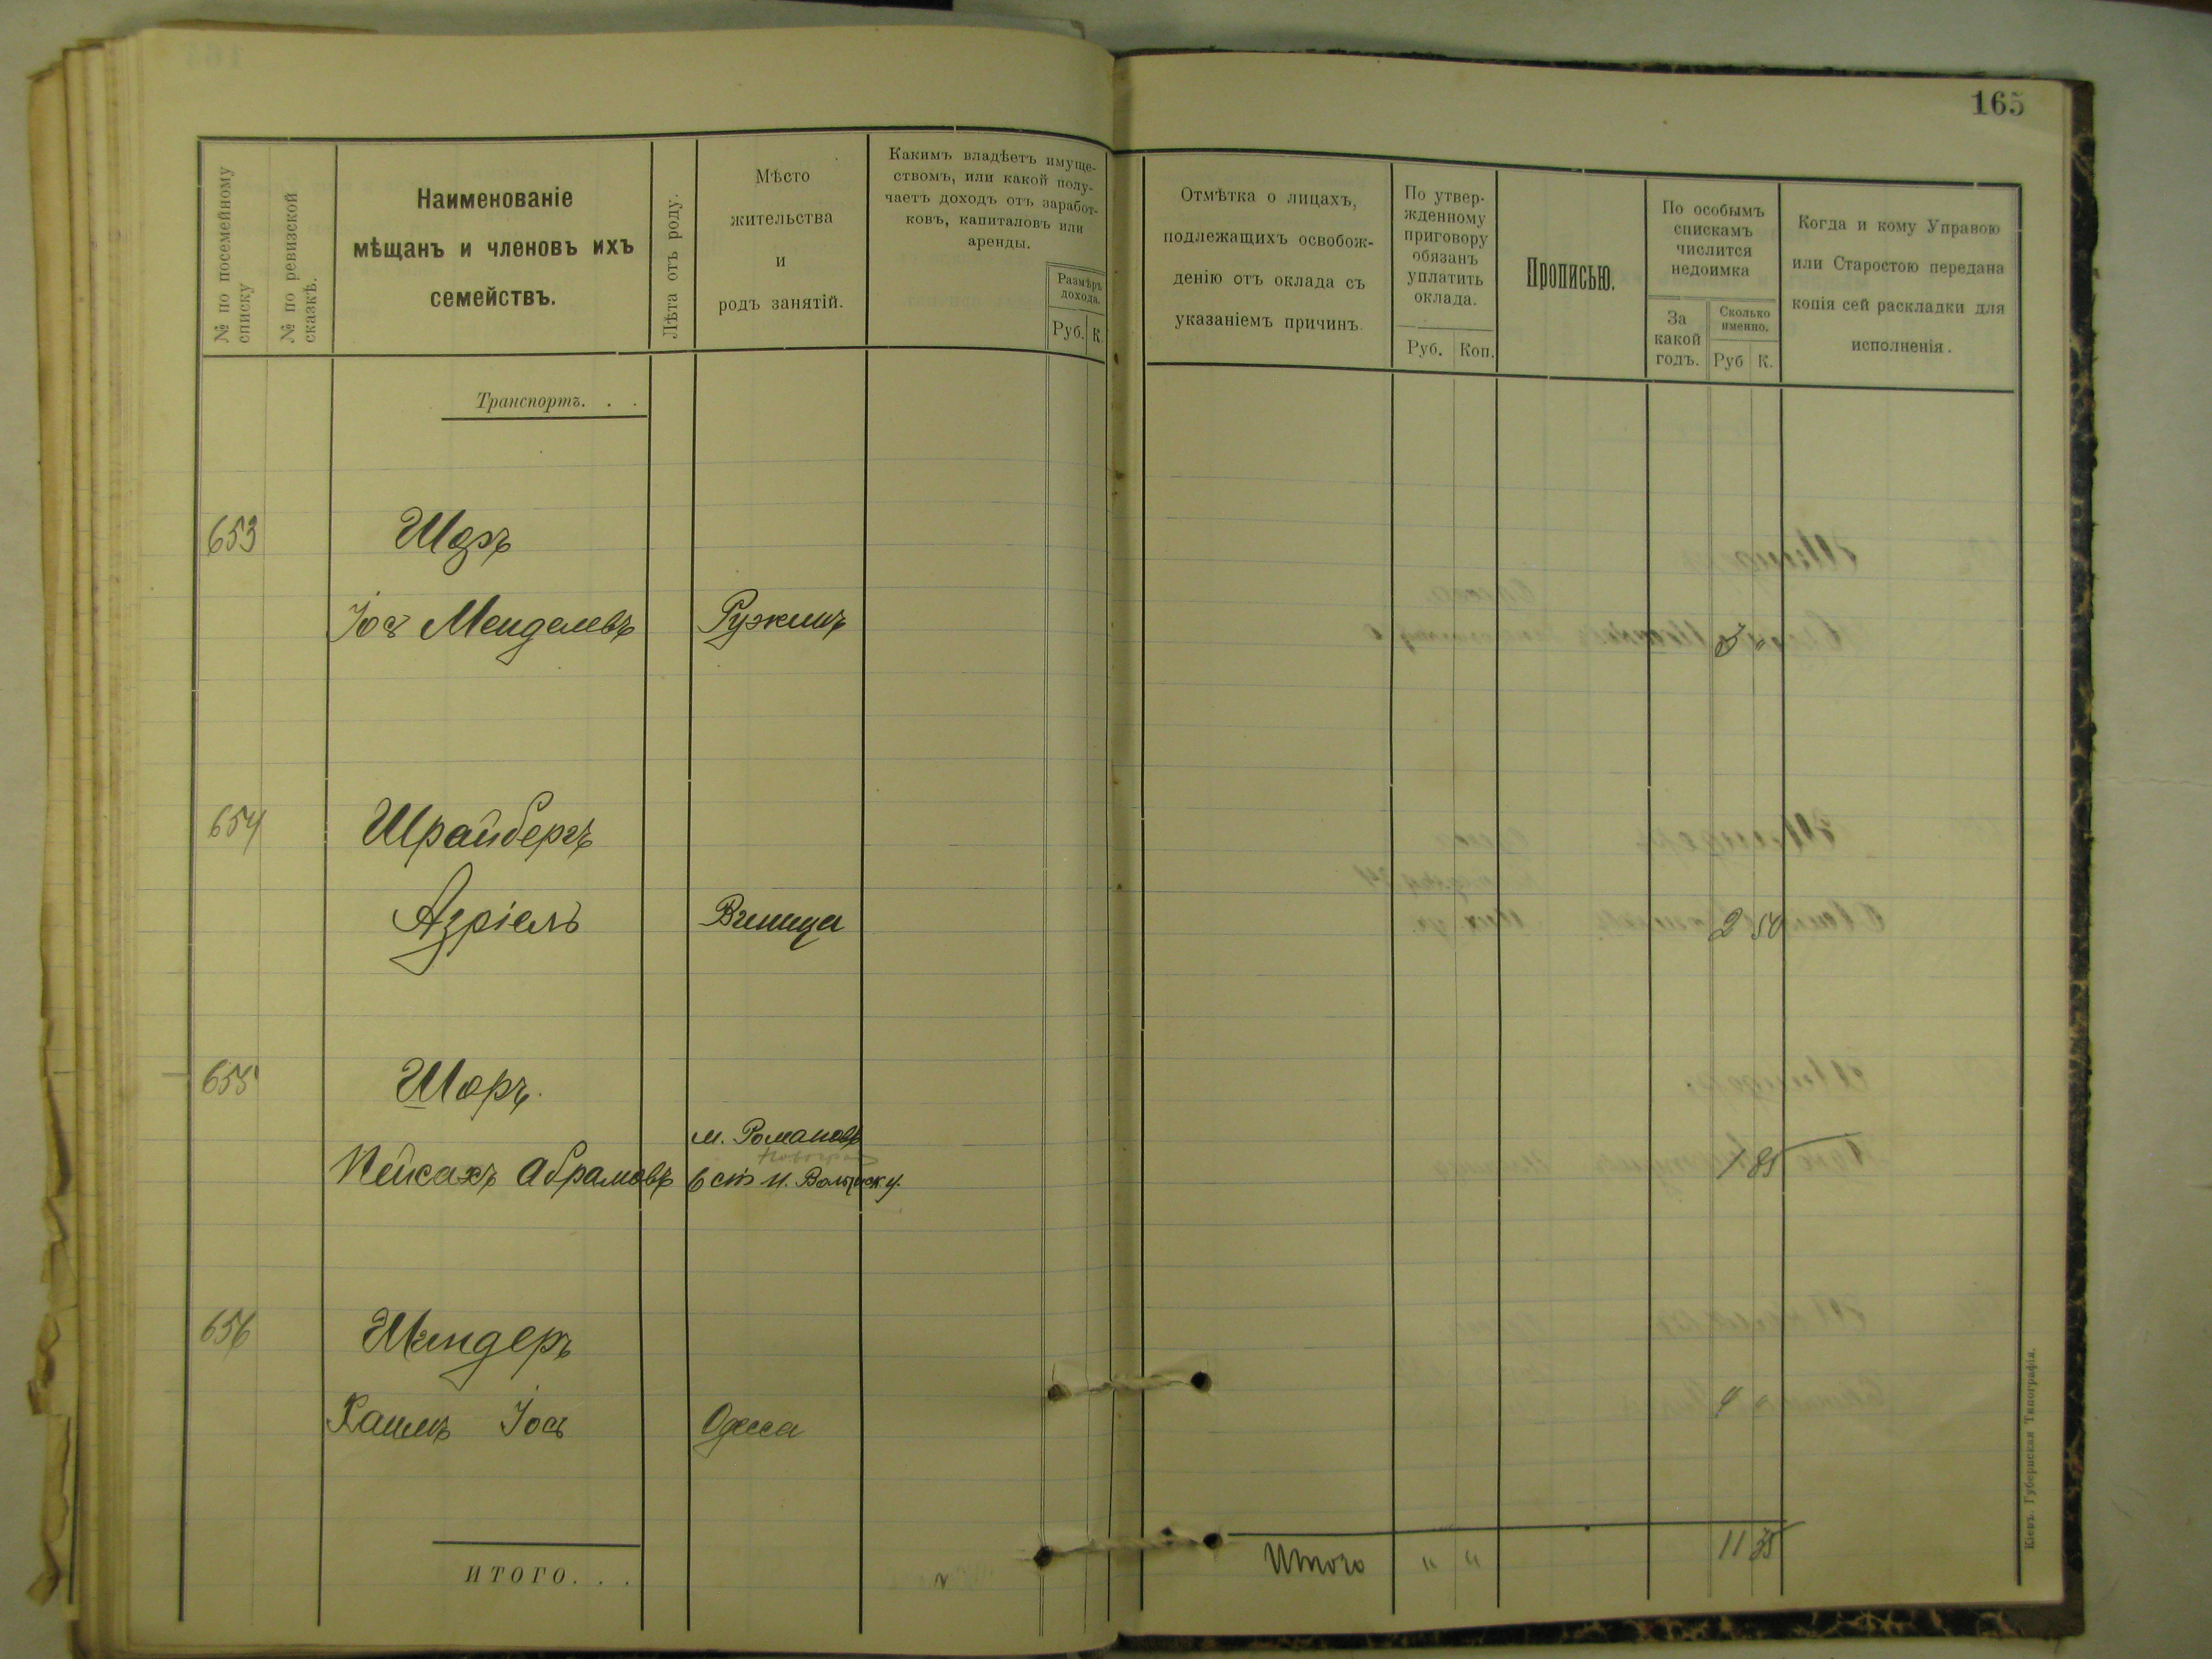 165
№ по посемейному списку
№ по ревизской сказкѣ.
Наименованіе
мѣщанъ и членовъ ихъ
семействъ.
Лѣта отъ роду.
Мѣсто
жительства
и
родъ занятій.
Какимъ владѣетъ имуще-
ствомъ, или какой полу-
чаетъ доходъ отъ заработ-
ковъ, капиталовъ или
аренды.
Размѣръ
дохода.
Руб. К.
Отмѣтка о лицахъ,
подлежащихъ освобож-
денію отъ оклада съ
указаніемъ причинъ.
По утвер-
жденному
приговору
обязанъ
уплатить
оклада.
Руб. Коп.
Прописью.
По особымъ
спискамъ
числится
недоимка
За
какой
годъ.
Сколько
именно.
Руб К.
Когда и кому Управою
или Старостою передана
копія сей раскладки для
исполненія.
Транспортъ. . .
653
Іос Менделевъ Ружинъ 3 "
654 Шрайбергъ
Азріель 2 50
655 Шоръ.
м. Романовъ
Новоград
Пейсахъ Абрамовъ Волынск у. 1 85
656 Шнндеръ
Хаимъ Іось Одесса 4 "
ИТОГО. . . Итого " " 11 35
Кіевъ. Губернская Типографія.